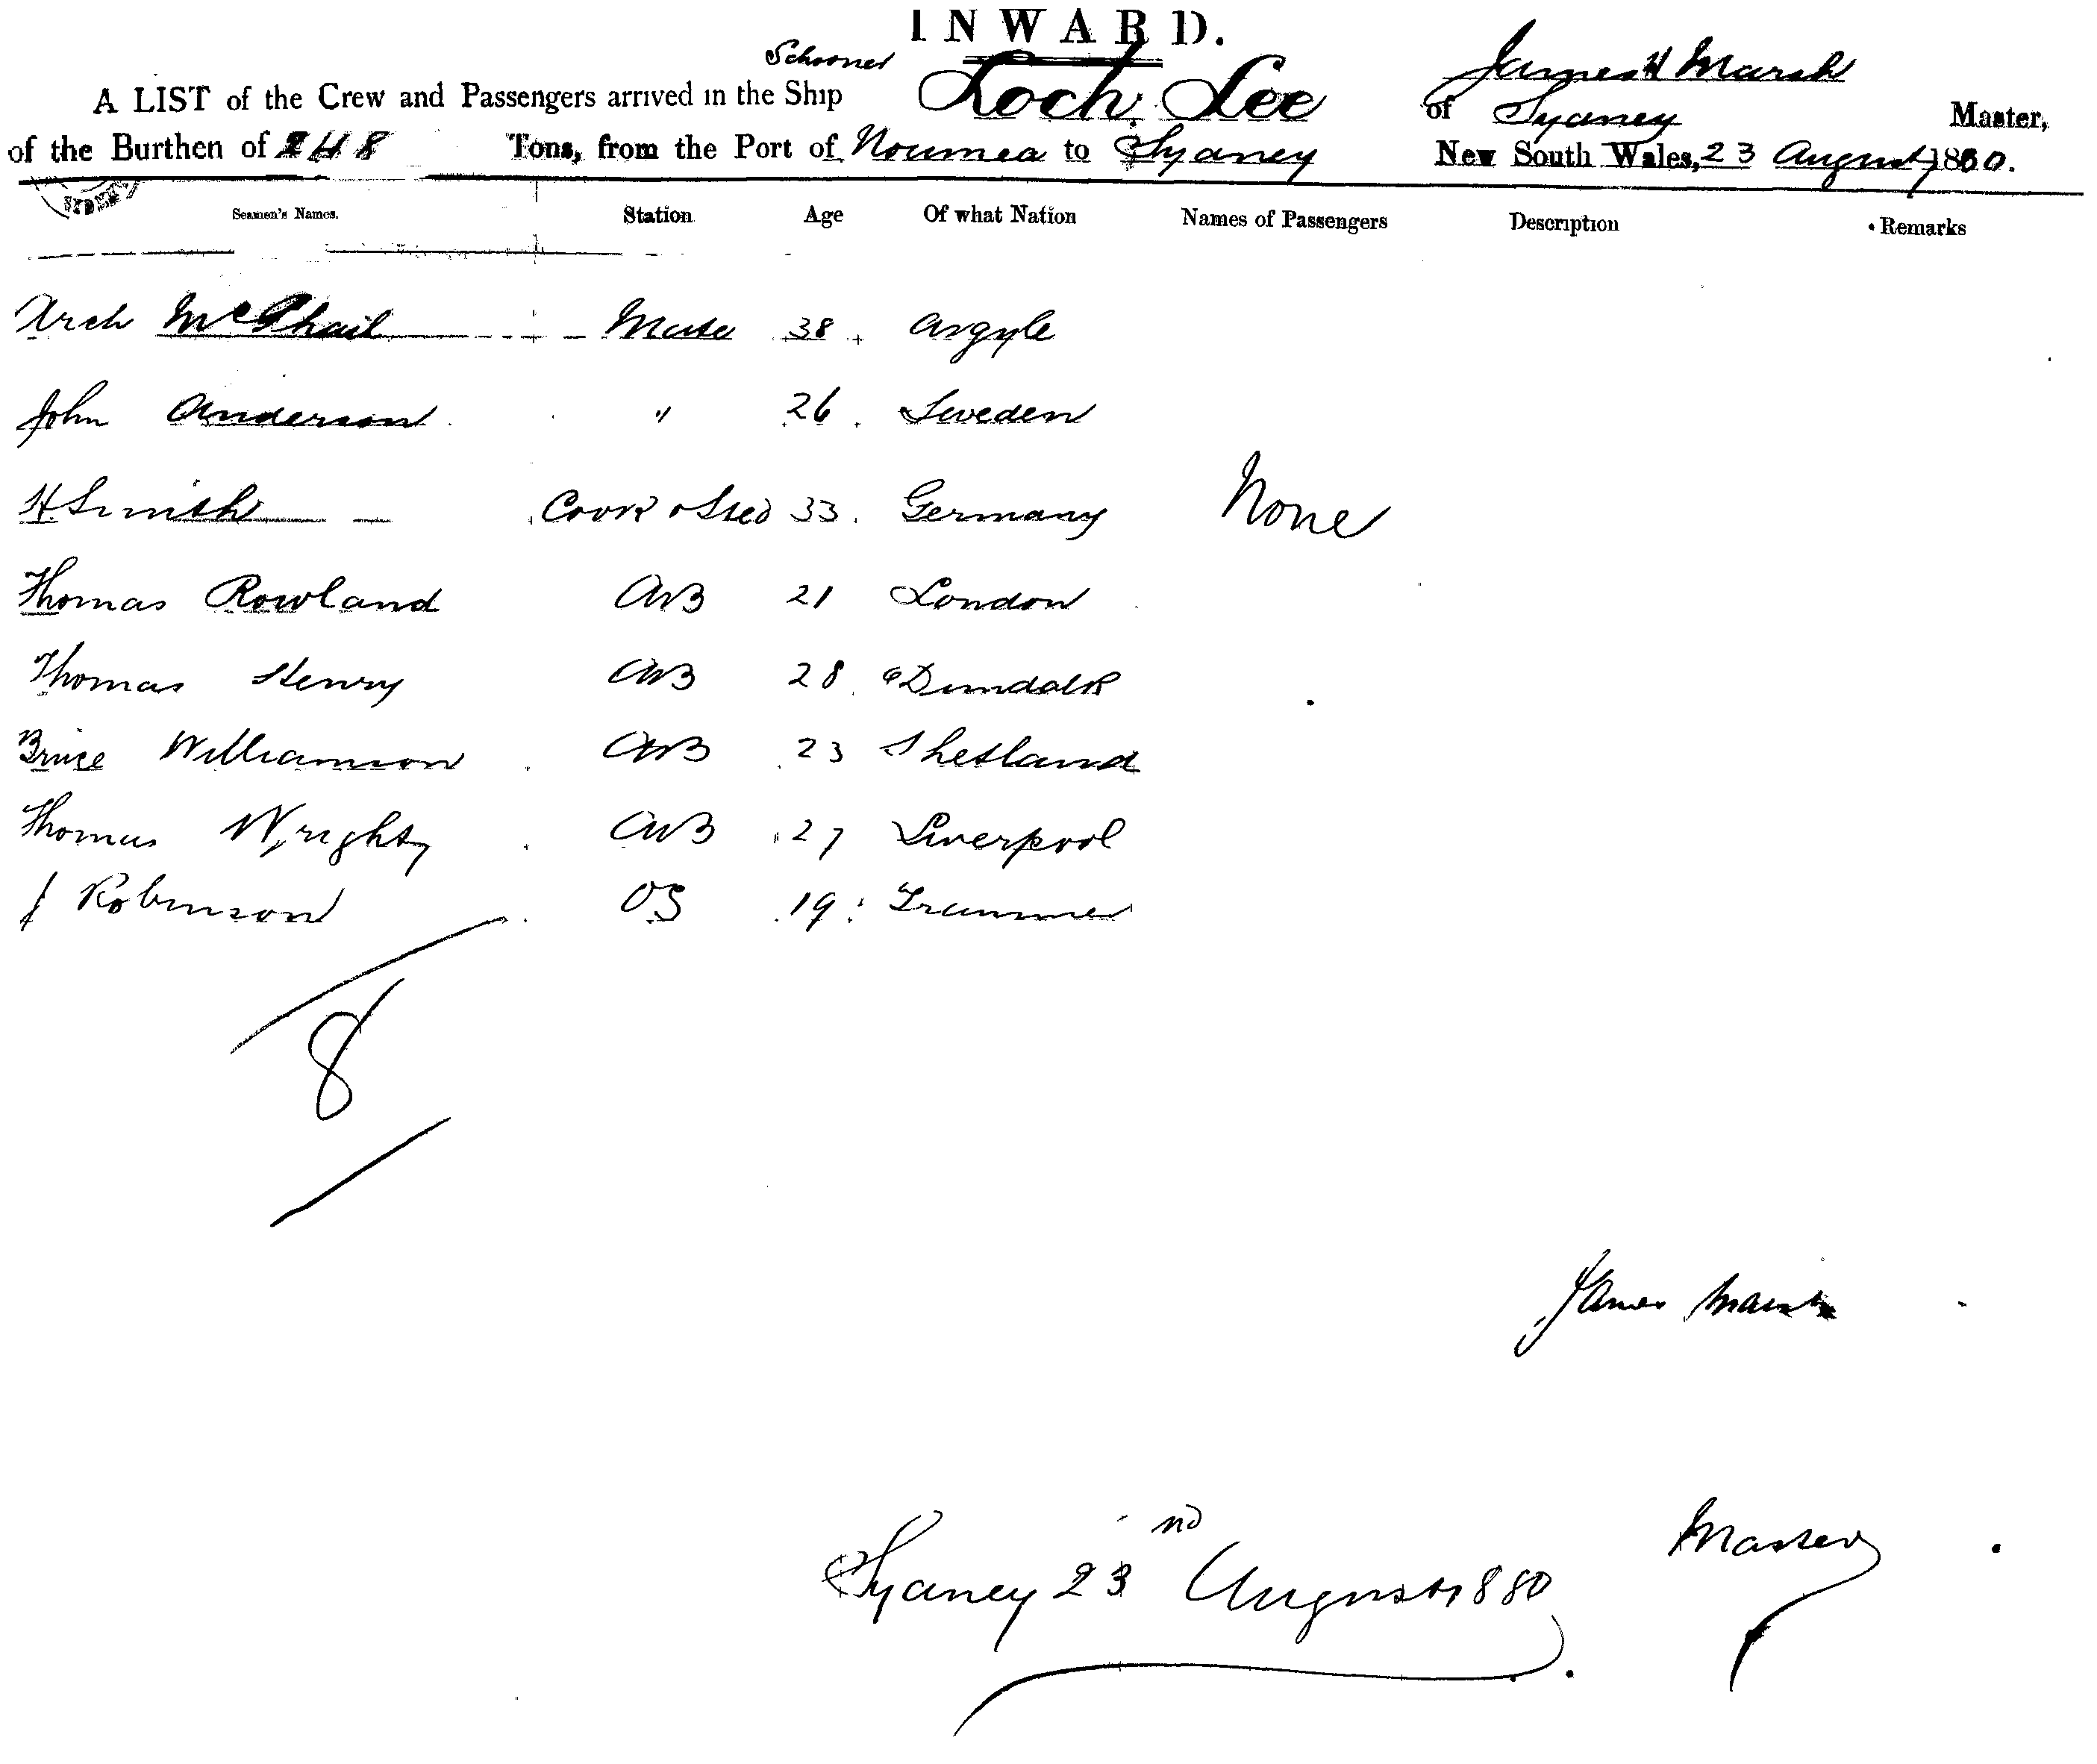 INWARD.
A LIST of the Crew and Passengers arrived in the Ship Schooner Loch Lee James H Marsh of Sydney Master,
of the Burthen of 248 Tons, from the Port of Noumea to Sydney New South Wales, 23 August 1880.
Seamen's Names. Station Age Of what Nation Names of Passengers Description Remarks
Arch McPhail Mate 38 Argyle
John Anderson " 26 Sweden
H Smith Cook & Sted 33 Germany None
Thomas Rowland AB 21 London
Thomas Henry AB 28 Dundalk
Bruce Williamson AB 23 Shetland
Thomas Wright AB 27 Liverpool
J Robinson OS 19
8
James Marsh
Master
Sydney 23nd August 1880